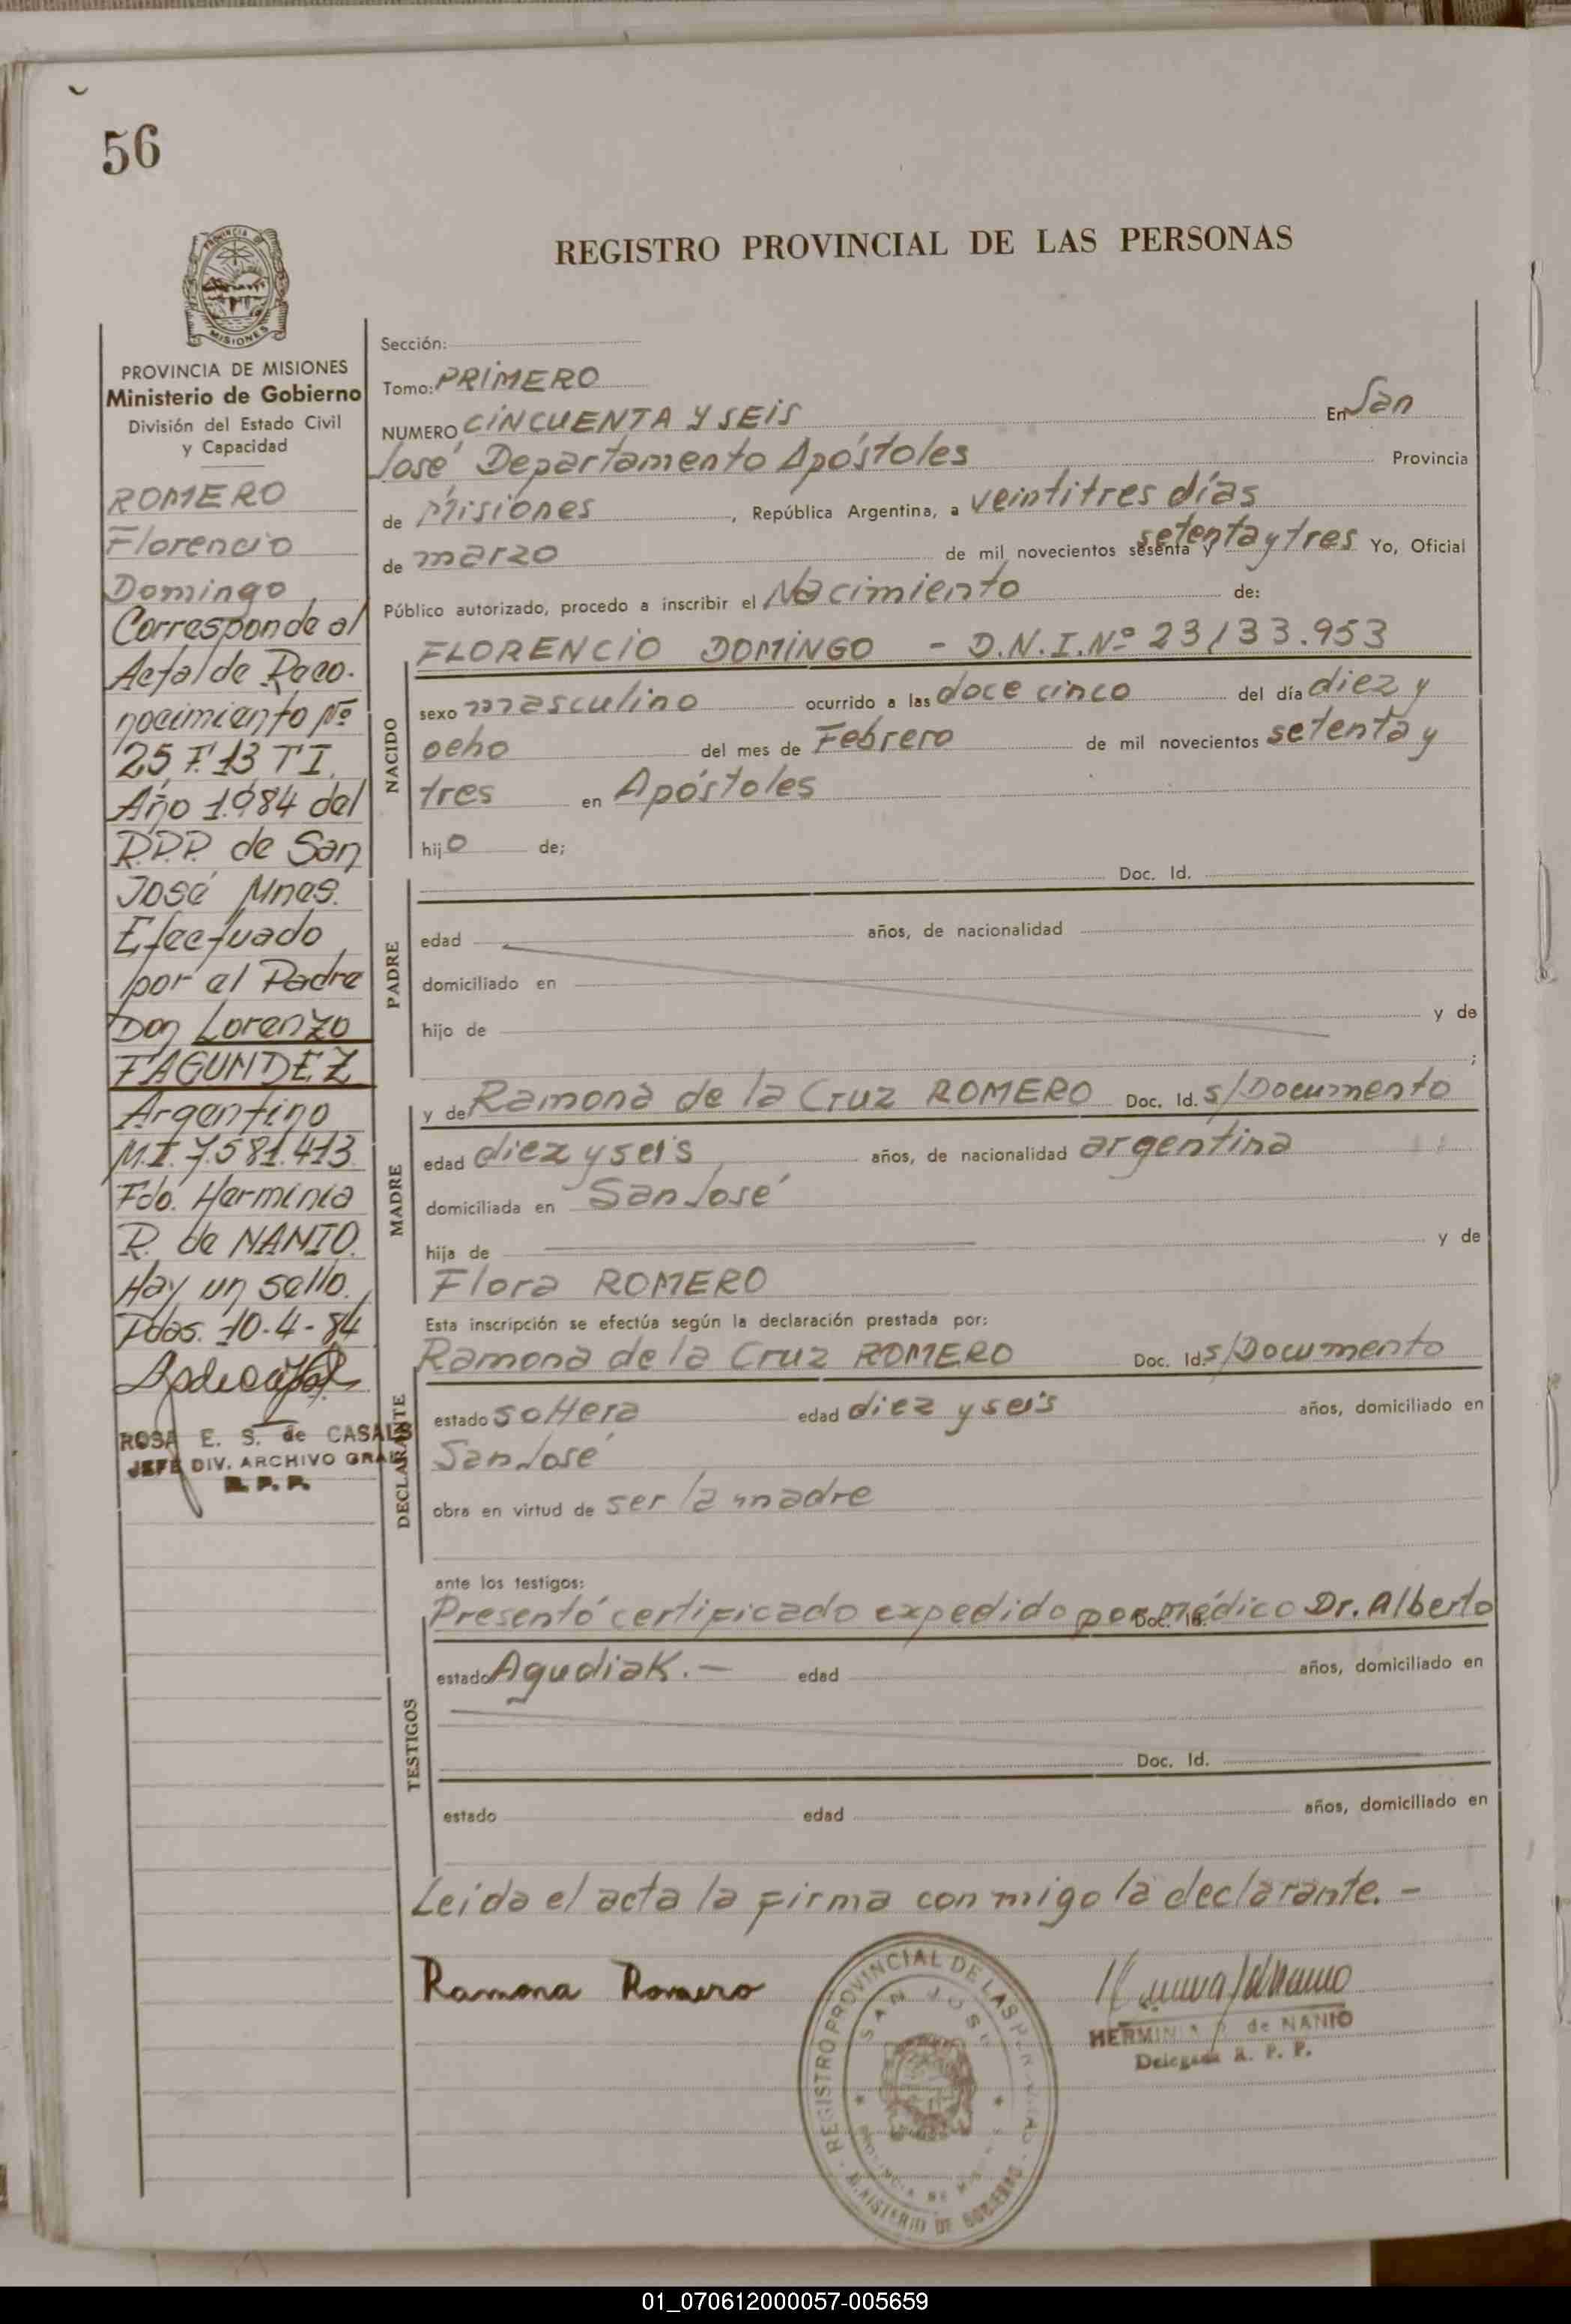 56
REGISTRO PROVINCIAL DE LAS PERSONAS
PROVINCIA DE MISIONES
MISIONES
PROVINCIA DE MISIONES
Ministerio de Gobierno
División del Estado Civil
y Capacidad
ROMERO
Florencio
Domingo
Corresponde al
Acta de Reco-
nocimiento Nº
25 F. 13 T I.
Año 1.984 del
R.P.P. de San
José Mnes.
Efectuado
por el Padre
Don Lorenzo
FAGUNDEZ
Argentino
M.I. 7.581.413
Fdo. Herminia
R. de NANIO.
Hay un sello.
Pdas. 10-4-84
ROSA E. S. de CASALS
JEFE DIV. ARCHIVO GRAL
R. P. P.
Sección:
Tomo: PRIMERO
NUMERO CINCUENTA Y SEIS En San
José Departamento Apóstoles Provincia
de Misiones, República Argentina, a veintitres días
de marzo de mil novecientos sesenta y setenta y tres Yo, Oficial
Público autorizado, procedo a inscribir el Nacimiento de:
FLORENCIO DOMINGO - D.N.I. Nº 23/33.953
NACIDO
sexo masculino ocurrido a las doce cinco del día diez y
ocho del mes de Febrero de mil novecientos setenta y
tres en Apóstoles
hijo de;
Doc. Id.
PADRE
edad años, de nacionalidad
domiciliado en
hijo de y de
;
MADRE
y de Ramona de la Cruz ROMERO Doc. Id. s/Documento
edad diez y seis años, de nacionalidad argentina
domiciliada en San José
hija de y de
Flora ROMERO
Esta inscripción se efectúa según la declaración prestada por:
DECLARANTE
Ramona de la Cruz ROMERO Doc. Id. s/Documento
estado soltera edad diez y seis años, domiciliado en
San José
obra en virtud de ser la madre
ante los testigos:
TESTIGOS
Presentó certificado expedido por médico Dr. Alberto
Doc. Id.
estado Agudiak.- edad años, domiciliado en
Doc. Id.
estado edad años, domiciliado en
Leida el acta la firma conmigo la declarante.-
Ramona Romero
REGISTRO PROVINCIAL DE LAS PERSONAS
SAN JOSE
PROVINCIA DE MISIONES
MINISTERIO DE GOBIERNO
HERMINIA R. de NANIO
Delegada R. P. P.
01_070612000057-005659